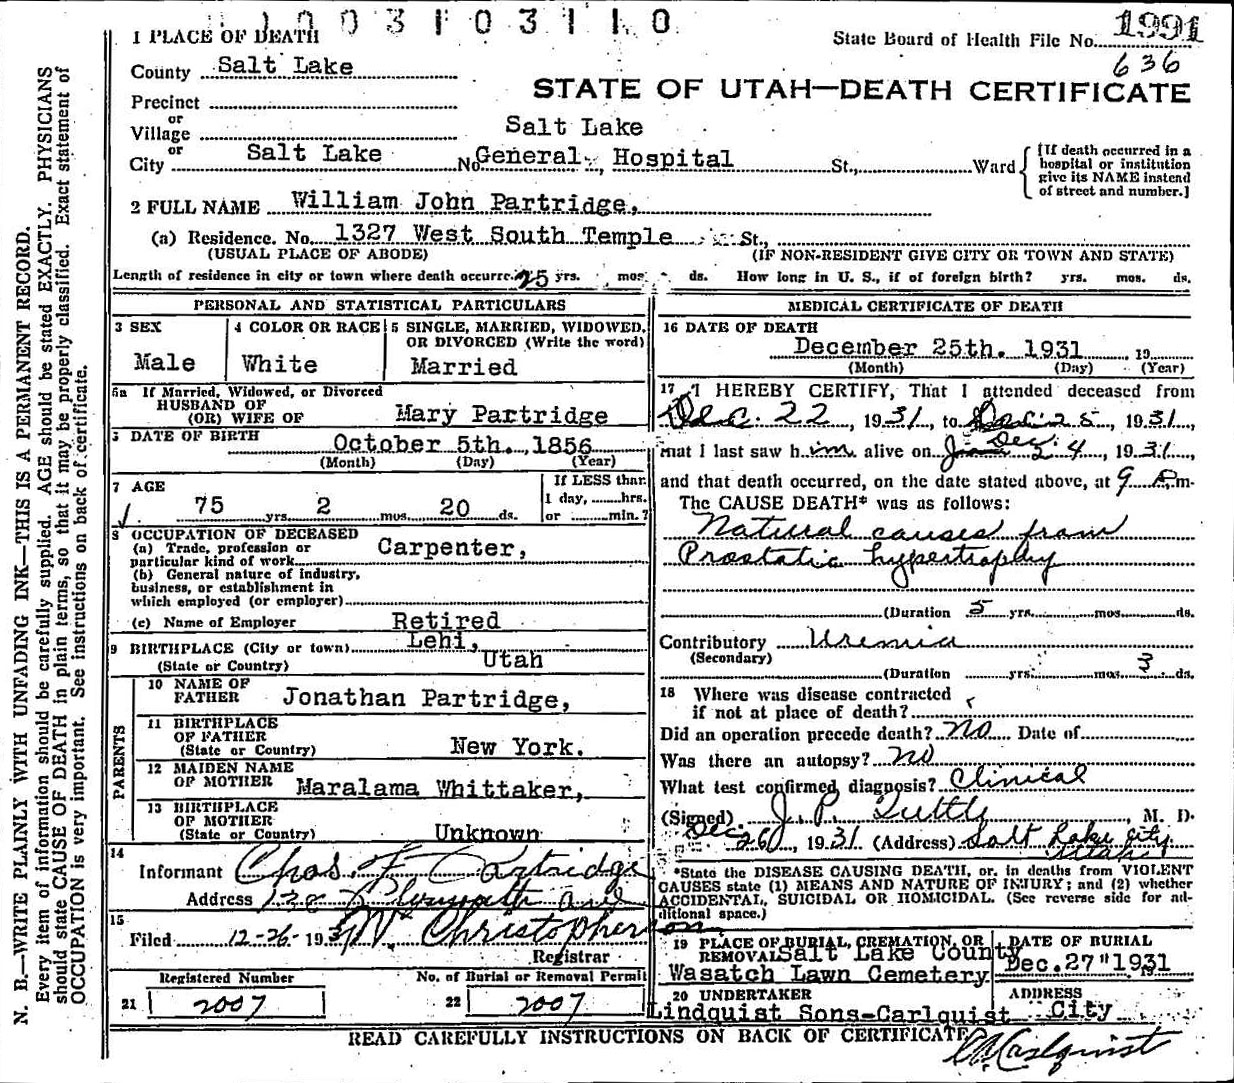 1003103110
1 PLACE OF DEATH
State Board of Health File No. 1991
636
County Salt Lake
STATE OF UTAH—DEATH CERTIFICATE
Precinct
or
Village
Salt Lake
or
City Salt Lake No. General Hospital St., Ward
[If death occurred in a
hospital or institution
give its NAME instead
of street and number.]
2 FULL NAME William John Partridge,
(a) Residence. No. 1327 West South Temple St.,
(USUAL PLACE OF ABODE) (IF NON-RESIDENT GIVE CITY OR TOWN AND STATE)
Length of residence in city or town where death occurre. 25 yrs. mos. ds. How long in U. S., if of foreign birth? yrs. mos. ds.
PERSONAL AND STATISTICAL PARTICULARS
3 SEX
Male
4 COLOR OR RACE
White
5 SINGLE, MARRIED, WIDOWED,
OR DIVORCED (Write the word)
Married
5a If Married, Widowed, or Divorced
HUSBAND OF
(OR) WIFE OF Mary Partridge
DATE OF BIRTH
October 5th., 1856
(Month) (Day) (Year)
7 AGE
75 yrs. 2 mos. 20 ds.
If LESS than
1 day, hrs.
or min.?
8 OCCUPATION OF DECEASED
(a) Trade, profession or
particular kind of work Carpenter,
(b) General nature of industry,
business, or establishment in
which employed (or employer)
(c) Name of Employer Retired
9 BIRTHPLACE (City or town) Lehi,
(State or Country) Utah
PARENTS
10 NAME OF
FATHER Jonathan Partridge,
11 BIRTHPLACE
OF FATHER
(State or Country) New York.
12 MAIDEN NAME
OF MOTHER Maralama Whittaker,
13 BIRTHPLACE
OF MOTHER
(State or Country) Unknown
14
Informant Chas. F. Partridge
Address Plymouth ave
15
Filed 12-26-1931 Christopherson
Registrar
Registered Number
21 2007
No. of Burial or Removal Permit
22 2007
MEDICAL CERTIFICATE OF DEATH
16 DATE OF DEATH
December 25th. 1931 19
(Month) (Day) (Year)
17 I HEREBY CERTIFY, That I attended deceased from
Dec. 22, 1931 to Dec. 25, 1931,
that I last saw him alive on Dec. 24, 1931,
and that death occurred, on the date stated above, at 9 P.m.
The CAUSE DEATH* was as follows:
Natural causes from
Prostatic hypertrophy
(Duration 5 yrs. mos. ds.
Contributory Uremia
(Secondary)
(Duration yrs. mos. 3 ds.
18 Where was disease contracted
if not at place of death?
Did an operation precede death? No Date of
Was there an autopsy? No
What test confirmed diagnosis? Clinical
(Signed) J. P. Tuttle, M. D.
Dec 26, 1931 (Address) Salt Lake City
Utah
*State the DISEASE CAUSING DEATH, or, in deaths from VIOLENT
CAUSES state (1) MEANS AND NATURE OF INJURY; and (2) whether
ACCIDENTAL, SUICIDAL OR HOMICIDAL. (See reverse side for ad-
ditional space.)
19 PLACE OF BURIAL, CREMATION, OR
REMOVAL Salt Lake County
Wasatch Lawn Cemetery
DATE OF BURIAL
Dec. 27" 1931
20 UNDERTAKER
Lindquist Sons-Carlquist
ADDRESS
City
READ CAREFULLY INSTRUCTIONS ON BACK OF CERTIFICATE
C A Carlquist
N. B.—WRITE PLAINLY WITH UNFADING INK—THIS IS A PERMANENT RECORD.
Every item of information should be carefully supplied. AGE should be stated EXACTLY. PHYSICIANS
should state CAUSE OF DEATH in plain terms, so that it may be properly classified. Exact statement of
OCCUPATION is very important. See instructions on back of certificate.